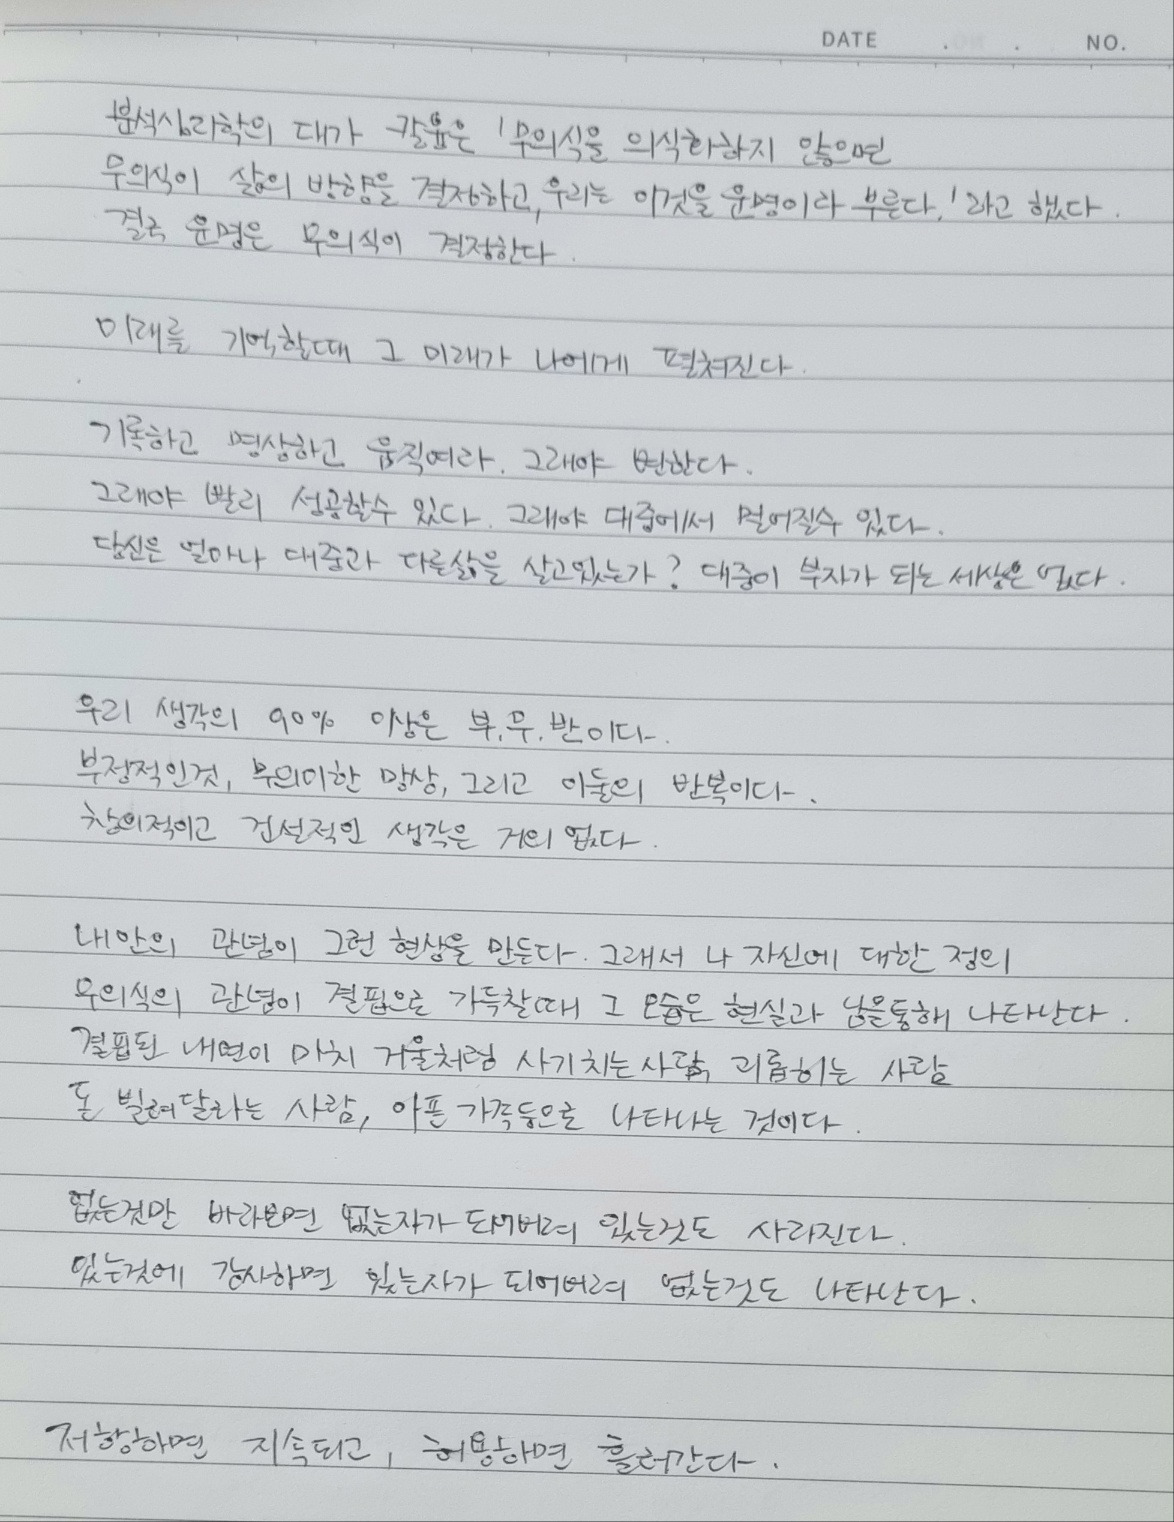 DATE . . NO.
분석심리학의 대가 칼융은 '무의식을 의식화하지 않으면
무의식이 삶의 방향을 결정하고, 우리는 이것을 운명이라 부른다.'라고 했다.
결국 운명은 무의식이 결정한다.
미래를 기억할때 그 미래가 나에게 펼쳐진다.
기록하고 명상하고 움직여라. 그래야 변한다.
그래야 빨리 성공할수 있다. 그래야 대중에서 멀어질수 있다.
당신은 얼마나 대중과 다른삶을 살고있는가? 대중이 부자가 되는 세상은 없다.
우리 생각의 90% 이상은 부.무.반이다.
부정적인것, 무의미한 망상, 그리고 이둘의 반복이다.
창의적이고 건설적인 생각은 거의 없다.
내안의 관념이 그런 현상을 만든다. 그래서 나 자신에 대한 정의
무의식의 관념이 결핍으로 가득찰때 그 모습은 현실과 남을통해 나타난다.
결핍된 내면이 마치 거울처럼 사기치는사람, 괴롭히는 사람
돈 빌려달라는 사람, 아픈 가족등으로 나타나는 것이다.
없는것만 바라보면 없는자가 되어버려 있는것도 사라진다.
있는것에 감사하면 있는자가 되어버려 없는것도 나타난다.
저항하면 지속되고, 허용하면 흘러간다.